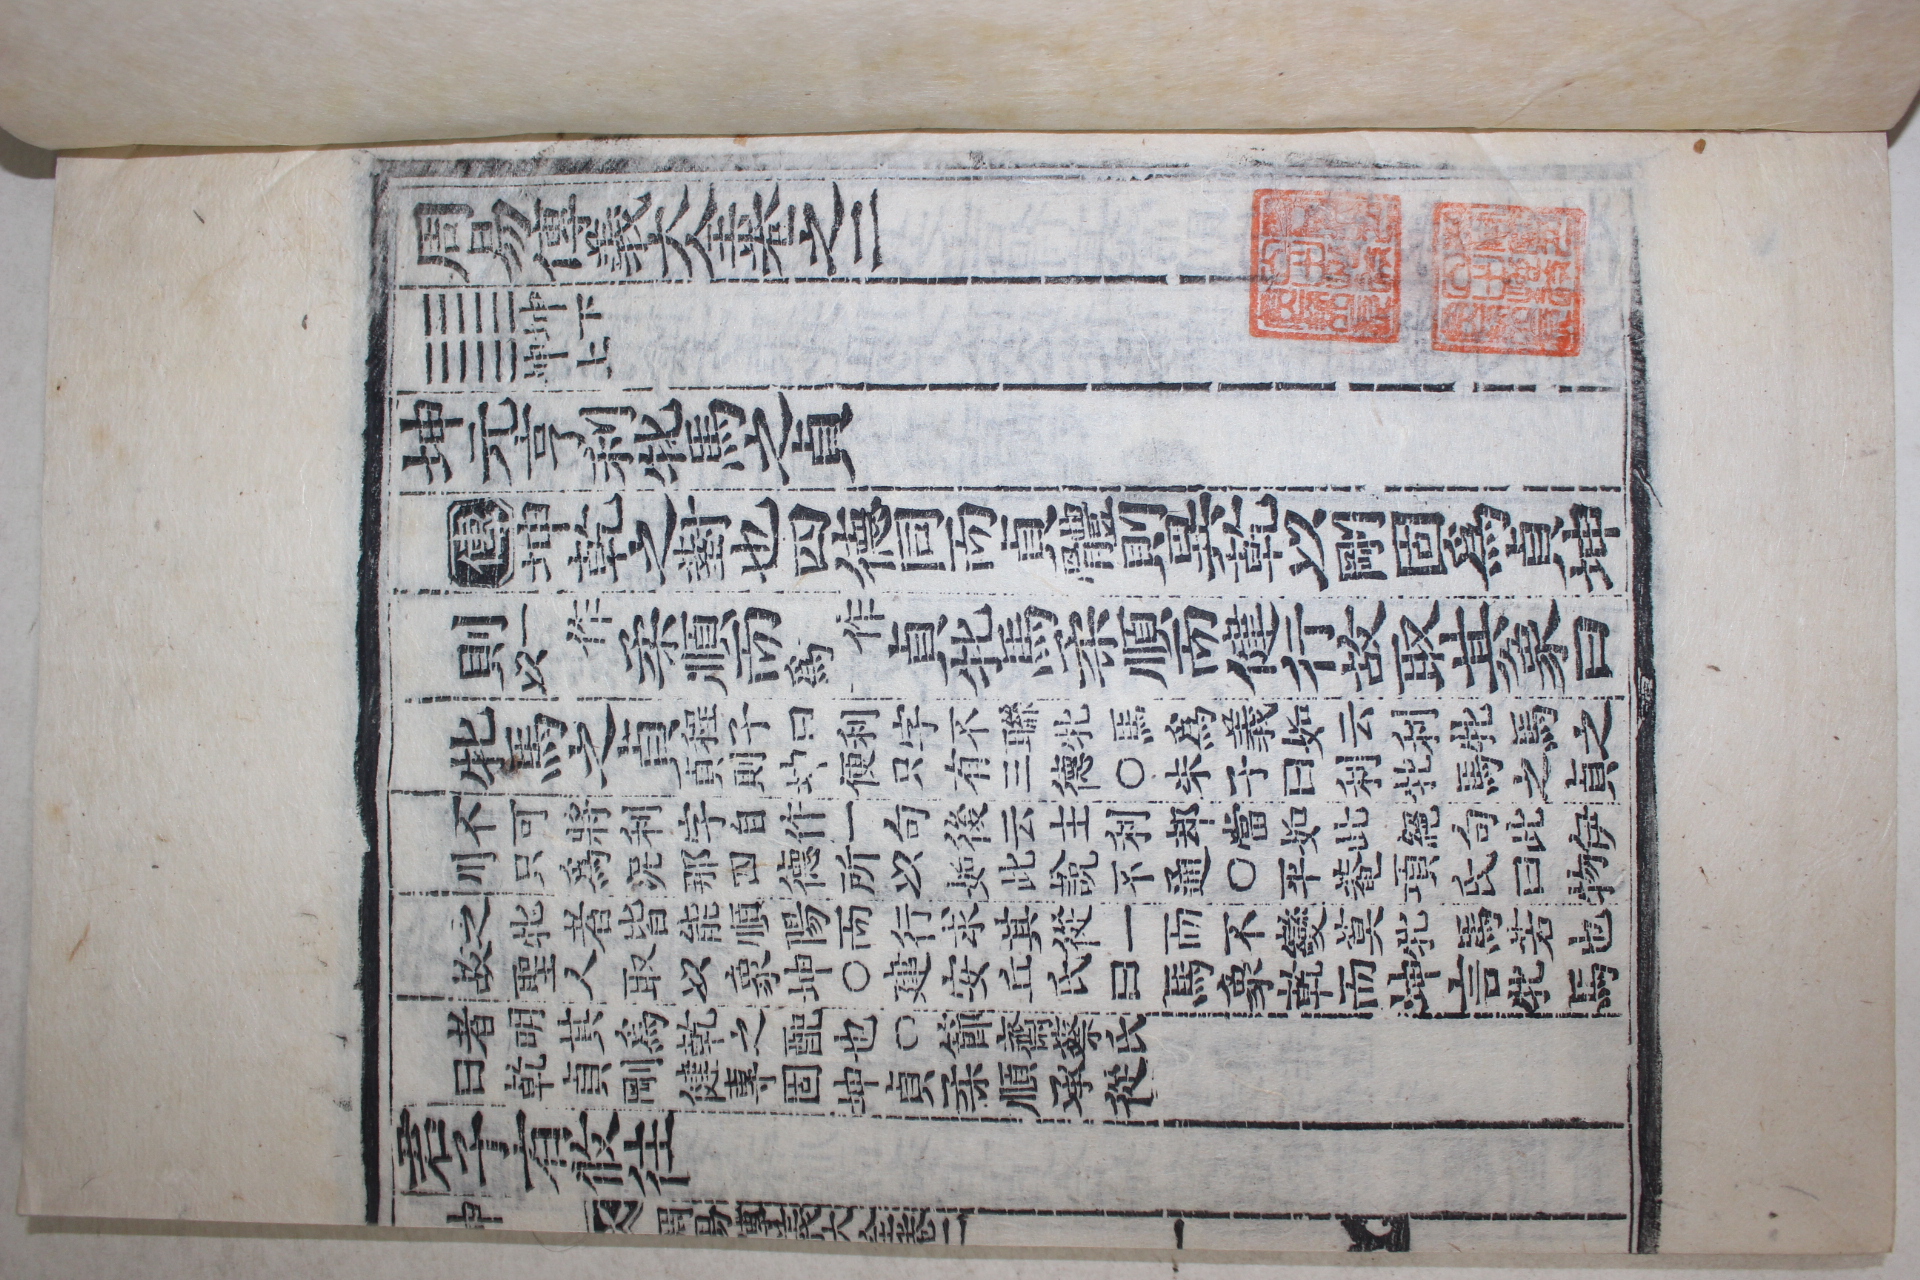 周易傳義大全卷之二
坤下
坤上
坤元亨利牝馬之貞
傳坤乾之對也四德同而貞體則異乾以剛固爲貞坤
則一作以柔順而一作爲貞牝馬柔順而健行故取其象曰
牝馬之貞程子曰利字不聯牝馬爲義如云利牝馬之
貞則坤便只有三德○朱子曰利牝馬之貞
不可將利字自作一句後云主利却當如此絕句此伊
川只爲泥那四德所以如此說不通○平菴項氏曰物
之牝者皆能順陽而行求其從一而不變莫牝馬若也
故聖人取以象坤○建安丘氏曰馬象乾而坤言牝馬
者明其爲乾之配也○節齋蔡氏
曰乾貞剛健專固坤貞柔順承從
君子有攸往
坤
周易傳義大全卷二
一